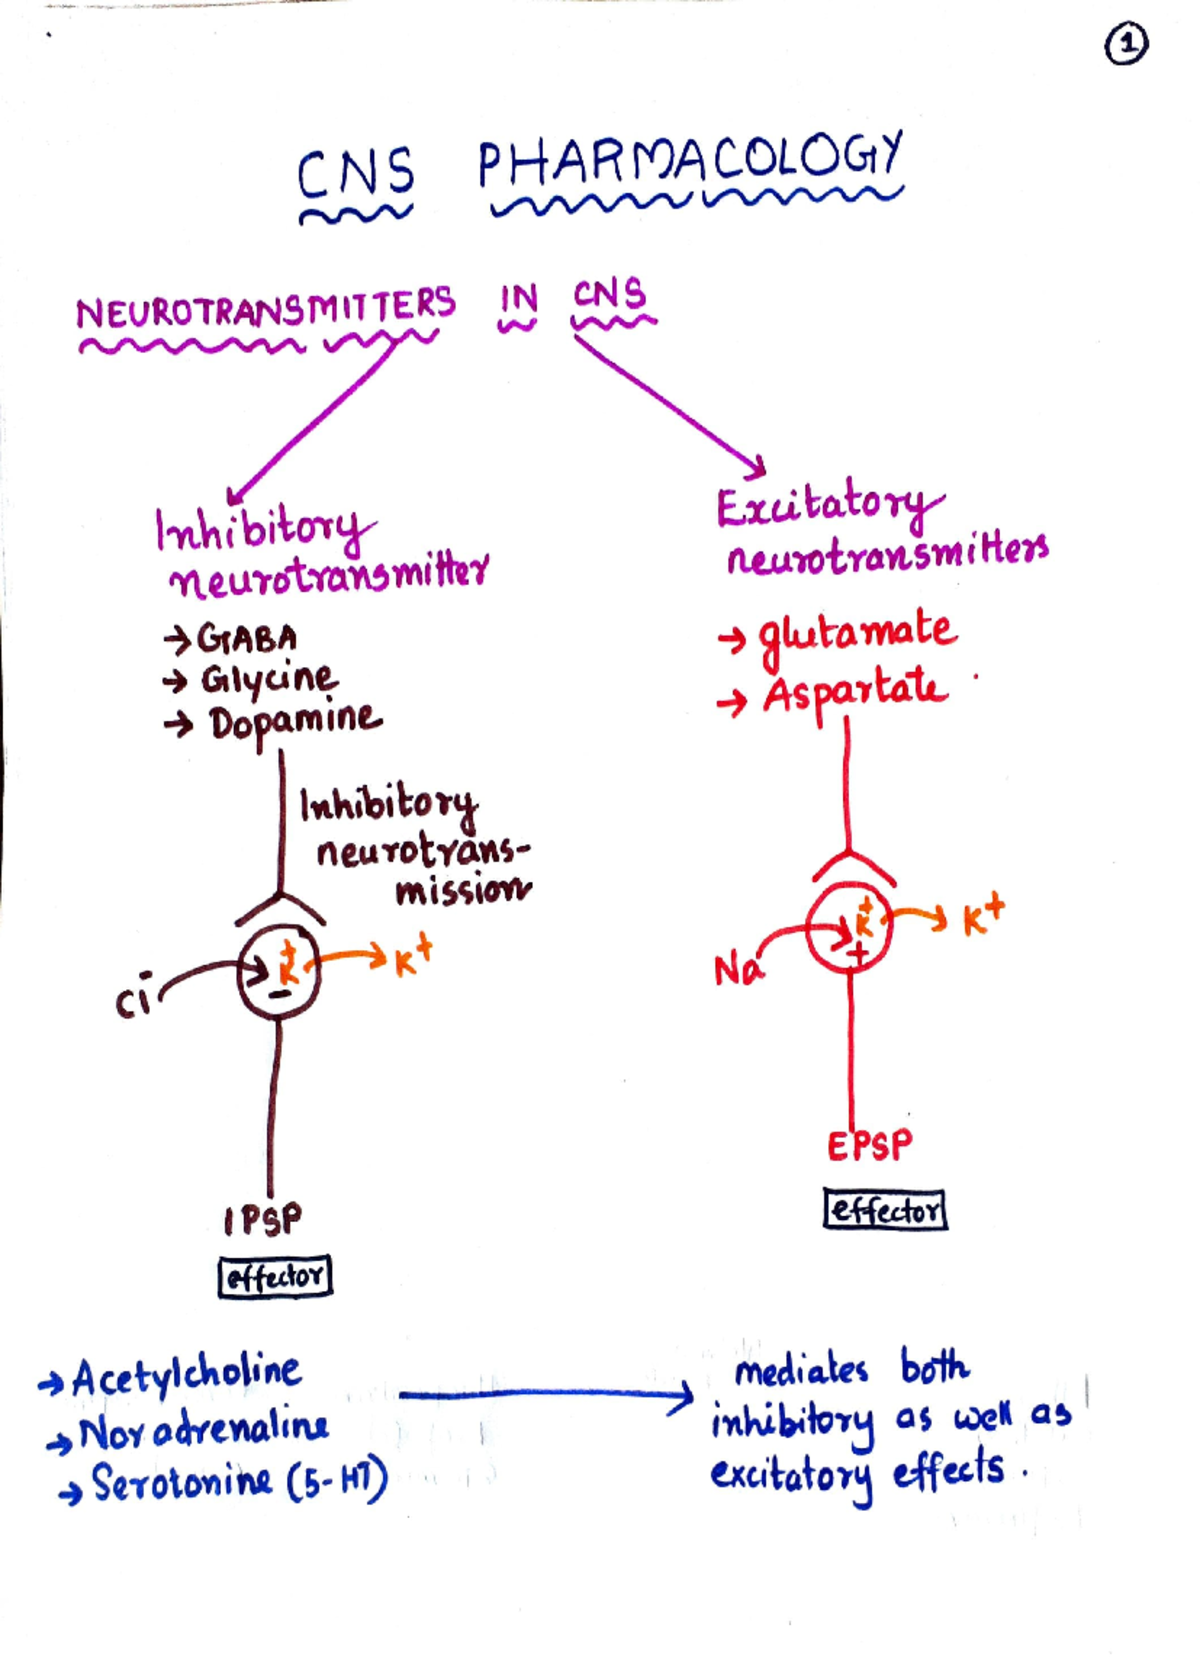 1
CNS PHARMACOLOGY
NEUROTRANSMITTERS IN CNS
Inhibitory
neurotransmitter
→ GABA
→ Glycine
→ Dopamine
Inhibitory
neurotrans-
mission
Cl-
K+
-
K+
IPSP
effector
Excitatory
neurotransmitters
→ glutamate
→ Aspartate
Na+
K+
+
K+
EPSP
effector
→ Acetylcholine
→ Noradrenaline
→ Serotonine (5-HT)
mediates both
inhibitory as well as
excitatory effects.